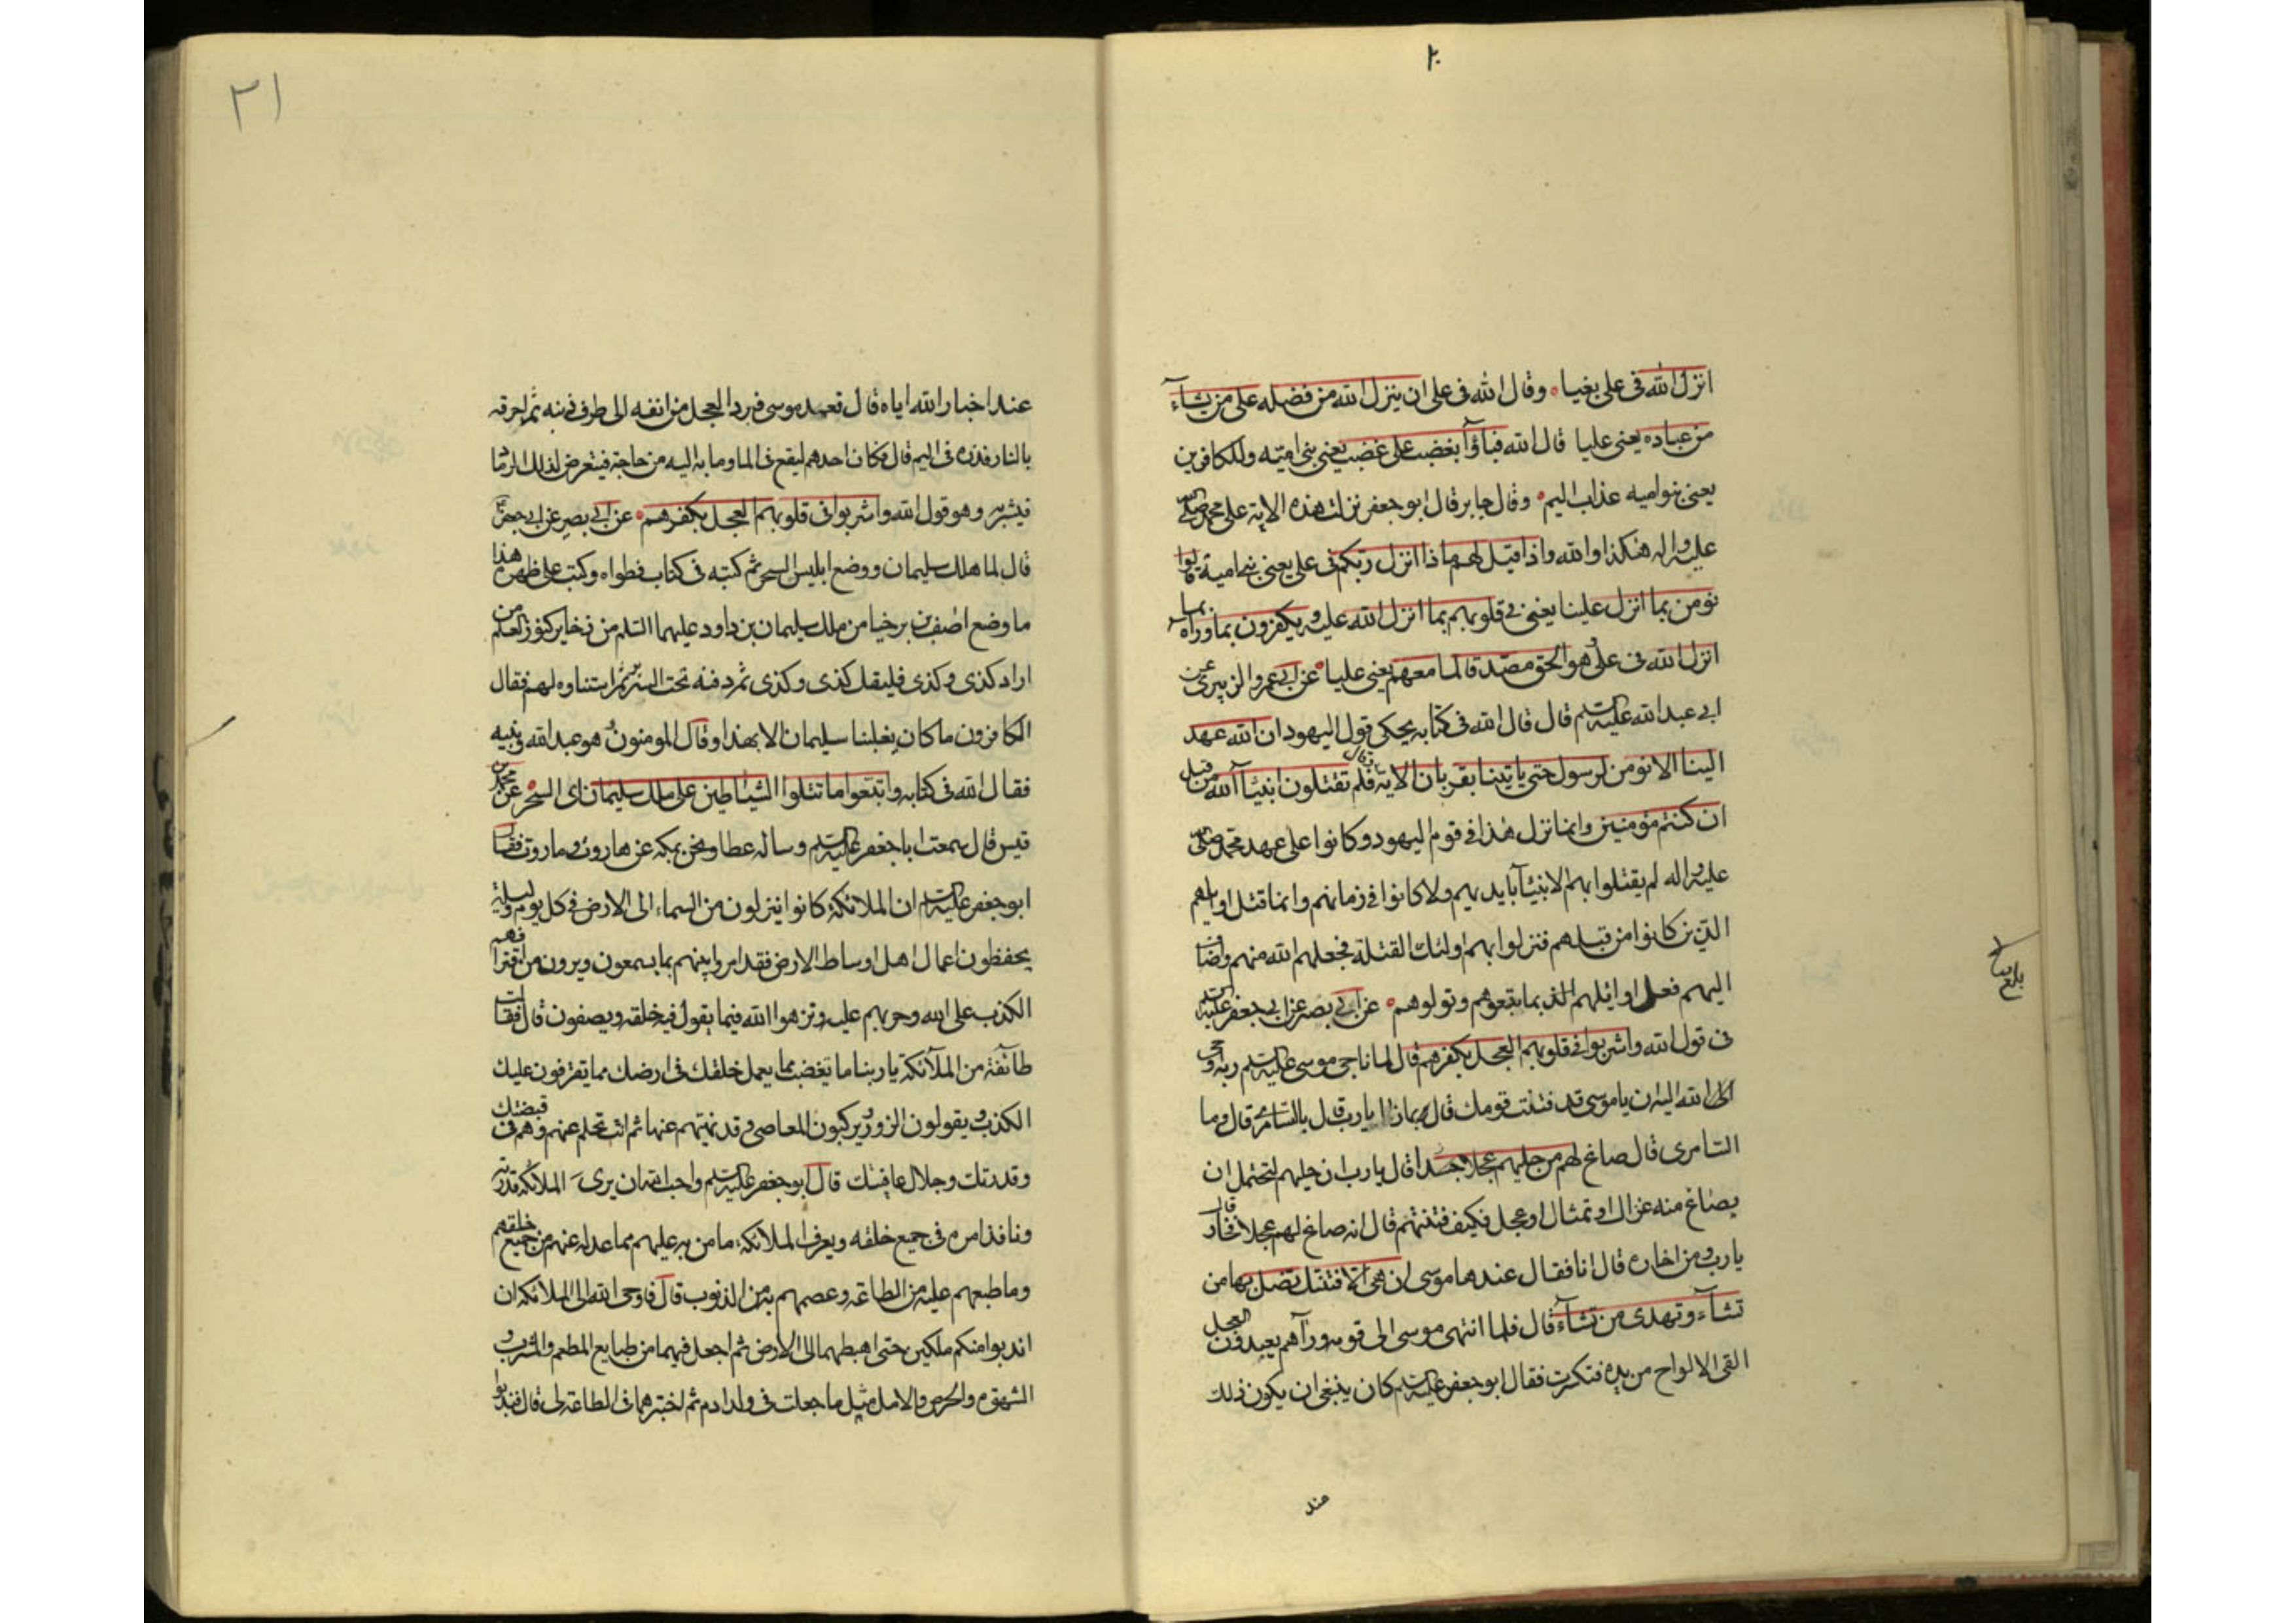 ٢٠
انزل الله فى على بغيا ه وقال الله فى على ان ينزل الله من فضله على من يشآء
من عباده يعنى عليا قال الله فباؤا بغضب على غضب يعنى بنى اميّه وللكافرين
يعنى بنو اميه عذاب اليم ه وقال جابر قال ابو جعفر نزلت هذه الاية على محمد صلى الله
عليه واله هكذا والله واذا قيل لهم ماذا انزل ربكم فى على يعنى بنى امية قالوا
نومن بما انزل علينا يعنى فى قلوبهم بما انزل الله عليه ويكفرون بما وراه بما
انزل الله فى على وهو الحق مصدقا لما معهم يعنى عليا ه عن ابى عمرو الزبيرى عن
ابى عبد الله عليه السلم قال قال الله فى كتابه يحكى قول اليهود ان الله عهد
الينا الا نومن لرسول حتى ياتينا بقربان الاية فقال فلم تقتلون انبيآء الله من قبل
ان كنتم مؤمنين وانما نزل هذا فى قوم اليهود وكانوا على عهد محمد صلى الله
عليه واله لم يقتلوا بهم الانبيآ بايديهم ولا كانوا فى زمانهم وانما قتل اوايلهم
الذين كانوا من قبلهم فنزلوا بهم اولئك القتلة فجعلهم الله منهم واضاف
اليهم فعل اوائلهم الذ بما تبعوهم وتولوهم ه عن ابى بصر عن ابى جعفر عليه السلم
فى قول الله واشربوا فى قلوبهم العجل بكفرهم قال لما ناجى موسى عليه السلم ربه اوحى
الله اليه ان يا موسى قد فتنت قومك قال بماذا يا رب قال بالسامرى قال وما
السامرى قال صاغ لهم من حليهم عجلا جسدا قال يا رب ان حليهم لتحتمل ان
يصاغ منه غزال او تمثال او عجل فكيف فتنتهم قال انه صاغ لهم عجلا فخار قال
يا رب ومن اخاره قال انا فقال عندها موسى ان هى الا فتنتك تضل بها من
تشآء وتهدى من تشآء قال فلما انتهى موسى الى قومه ورآهم يعبدون العجل
القى الالواح من يده فتكسرت فقال ابو جعفر عليه السلم كان ينبغى ان يكون ذلك
عند
٢١
عند اخبار الله اياه قال فعمد موسى فبرد العجل من انفه الى طرف ذنبه ثم احرقه
بالنار فذره فى اليم قال فكان احدهم ليقع فى الما وما به اليه من حاجة فيتعرض لذلك الرماد
فيشربه وهو قول الله واشربوا فى قلوبهم العجل بكفرهم ه عن ابى بصير عن ابى جعفر
قال لما هلك سليمان ووضع ابليس السحر ثم كتبه فى كتاب فطواه وكتب على ظهره هذا
ما وضع اصف بن برخيا من ملك سليمان بن داود عليهما السلم من ذخاير كنوز العلم من
اراد كذى وكذى فليقل كذى وكذى ثم دفنه تحت السرير ثم استثاره لهم فقال
الكافرون ما كان يغلبنا سليمان الا بهذا وقال المومنون هو عبد الله ونبيه
فقال الله فى كتابه واتبعوا ما تتلوا الشياطين على ملك سليمان اى السحر ه عن محمد بن
قيس قال سمعت ابا جعفر عليه السلم وساله عطا ونحن بمكه عن هاروت وماروت فقال
ابو جعفر عليه السلم ان الملائكة كانوا ينزلون من السماء الى الارض فى كل يوم وليلة
يحفظون اعمال اهل اوساط الارض فقد امروا بينهم بما يسمعون ويرون من افترائهم
الكذب على الله وجرءتهم عليه ونزهوا الله فيما يقول فيه خلقه ويصفون قال فقالت
طائفة من الملآئكة يا ربنا ما تغضب مما يعمل خلقك فى ارضك مما يفترون عليك
الكذب ويقولون الزور ويركبون المعاصى وقد نهيتهم عنها ثم انت تحلم عنهم وهم فى قبضتك
وقدرتك وجلال عافيتك قال ابو جعفر عليه السلم واحب الله ان يرى الملائكة قدرته
ونافذ امره فى جميع خلقه ويعرف الملائكة ما من به عليهم مما عدله عنهم من جميع خلقهم
وما طبعهم عليه من الطاعة وعصمهم به من الذنوب قال فاوحى الله الى الملائكه ان
اندبوا منكم ملكين حتى اهبطهما الى الارض ثم اجعل فيهما من طبايع المطعم والمشرب و
الشهوة والحرص والامل مثل ما جعلت فى ولد ادم ثم اختبرهما فى الطاعة لى قال فندبوا